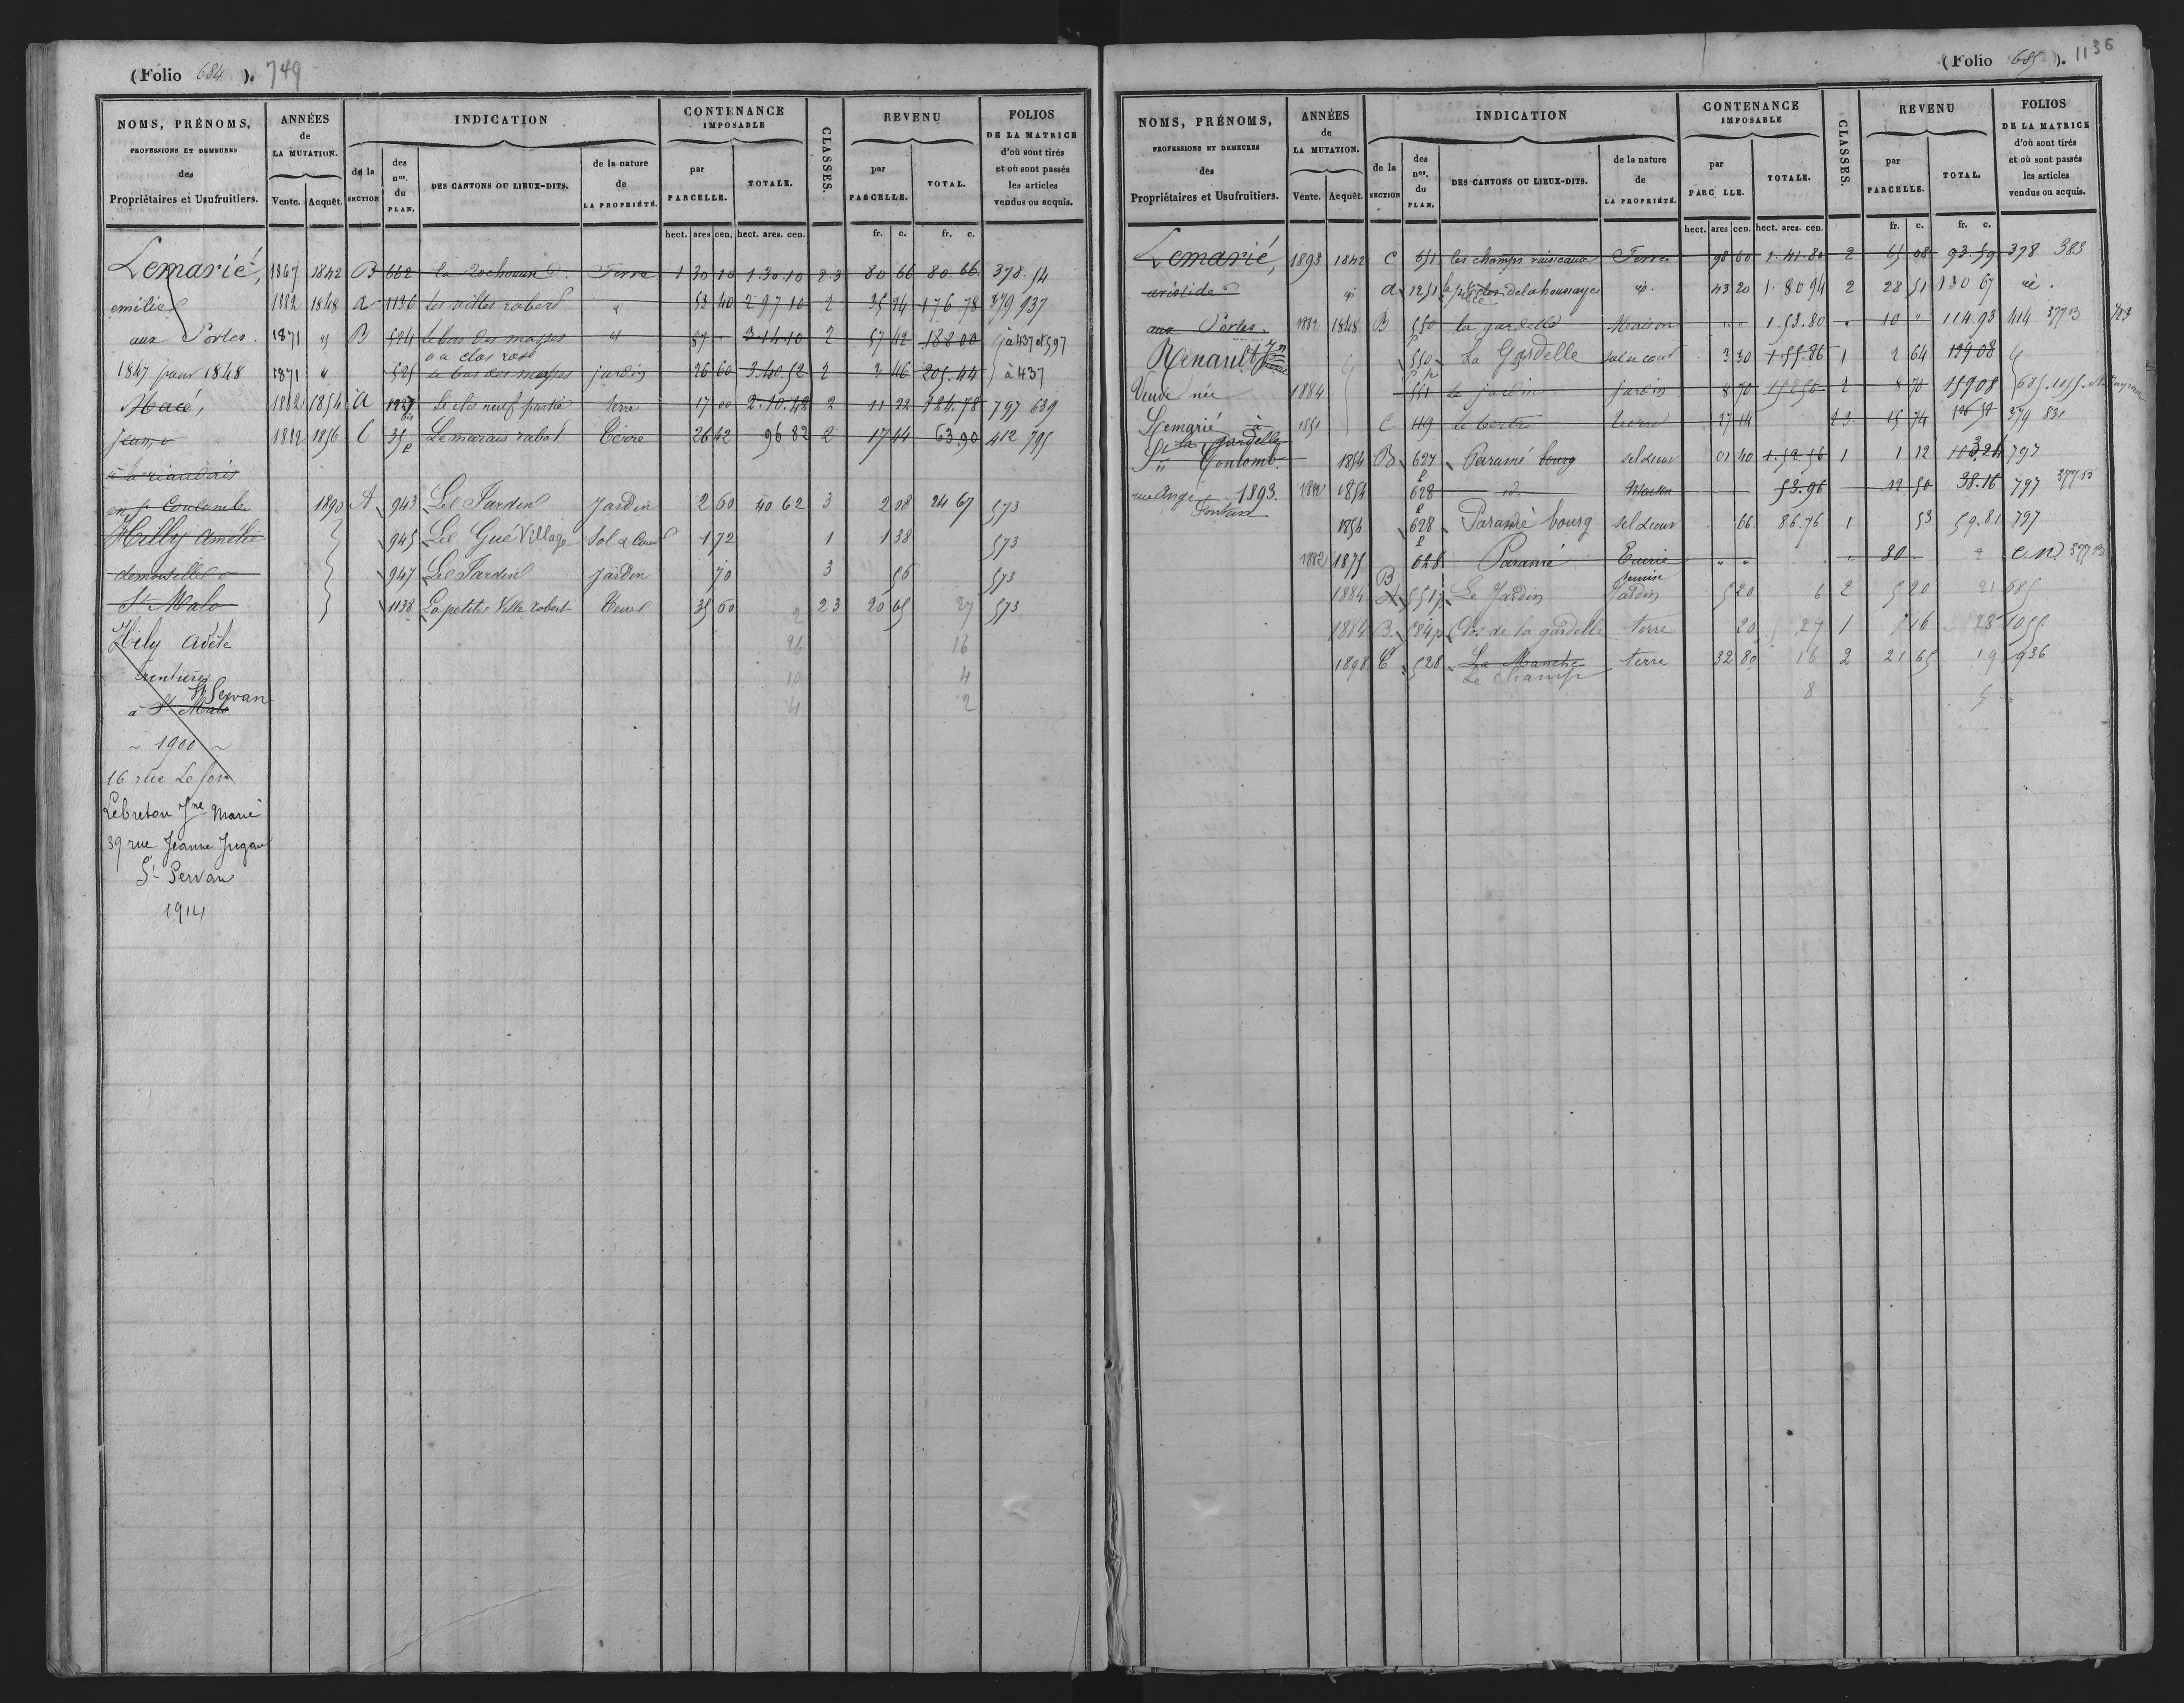 (Folio 684 ). 749
NOMS, PRÉNOMS, PROFESSIONS ET DEMEURES des Propriétaires et Usufruitiers.
ANNÉES de LA MUTATION. Vente. Acquêt.
INDICATION
de la SECTION
des nos. du PLAN.
DES CANTONS OU LIEUX-DITS.
de la nature de LA PROPRIÉTÉ.
CONTENANCE IMPOSABLE
par PARCELLE. TOTALE.
CLASSES.
REVENU
par PARCELLE. TOTAL.
FOLIOS DE LA MATRICE d'où sont tirés et où sont passés les articles vendus ou acquis.
hect. ares cen. hect. ares. cen. fr. c. fr. c.
Lemarié, 1867 1842 B 662 la Terre 1 30 10 1 30 10 2-3 80 66 80 66 378. 54
emilie 1882 1848 a 1136 les villes robert " 53 40 2 97 10 2 35 24 176 78 379 937
aux Portes. 1871 " B 524 le bas des masses " 87 " 3 14 10 2 57 42 188 00 à 437 et 597
ou clos
1847 pour 1848 1871 " 525 le bas des masses jardin 26 60 3.40.52 2 46 205.44 à 437
Macé, 1882 1854 A bis Le clos neuf partie terre 17 00 2.10.42 2 11 22 124.78 797 639
Jean, 1882 1856 C 35 p Le marais rabot Terre 26 42 96 82 2 17 44 63.90 412 795
en St Coulomb 1890 A 943 Le Jardin Jardin 2 60 40 62 3 2 08 24 67 573
Hilly Amélie 945 Le Gué Village Sol & Cour 1 72 1 1 38 573
demoiselle 947 Le Jardin Jardin 70 3 56 573
St Malo 1138 La petite Ville robert Terre 35 60 2 2 3 20 65 27 573
Hily Adèle 26 16
rentière 10 4
St Servan
à St Malo 4 2
~ 1900 ~
16 rue Le fer
Lebreton Jne Marie
39 rue Jeanne Jugan
St Servan
1914
(Folio 685 ). 1136
NOMS, PRÉNOMS, PROFESSIONS ET DEMEURES des Propriétaires et Usufruitiers.
ANNÉES de LA MUTATION. Vente. Acquêt.
INDICATION
de la SECTION
des nos. du PLAN.
DES CANTONS OU LIEUX-DITS.
de la nature de LA PROPRIÉTÉ.
CONTENANCE IMPOSABLE
par PARC LLE. TOTALE.
CLASSES.
REVENU
par PARCELLE. TOTAL.
FOLIOS DE LA MATRICE d'où sont tirés et où sont passés les articles vendus ou acquis.
hect. ares cen. hect. ares. cen. fr. c. fr. c.
Lemarié, 1893 1842 C 651 les champs ruisseaux Terre 98 60 1.41.80 2 65 08 93.59 378 383
aristide a 1251 de la houssaye id. 43 20 1.80 94 2 28 51 130 67 id.
aux Portes. 1882 1848 B 550 la gardelle Maison " " 1.53.80 " 10 " 114.93 414 377 B
Renault Jn Pierre 550 p La Gardelle sol et cour 3 30 1 55.86 1 2 64 129 08
Veuve née 1884 551 p le jardin Jardin 8 70 15256 2 8 70 15908 685.1055.
Lemarié à 1851 C 119 le tertre terre 27 14 2 3 15 74 379 831
la Gardelle
St Coulomb. 1854 B 627 p Paramé bourg sol & cour 01 40 1.52 56 1 1 12 113 24 797
rue Ange 1893. 1882 1854 628 id Maison 53.96 12 50 38.16 797 377 B
Fontan
1856 628 p Paramé bourg sol & cour 66 86.76 1 53 59.81 797
1882 1875 628 p Paramé Ecurie " " " 30 c N 377 B
remise
1884 B 551 p Le Jardin Jardin 5 20 6 2 5 20 21 685
1884 B. 524 p Clos de la gardelle terre 20 27 1 16 28 1055
1898 C 528 La Manche terre 32 80 16 2 21 65 19 936
Le champ
8 5